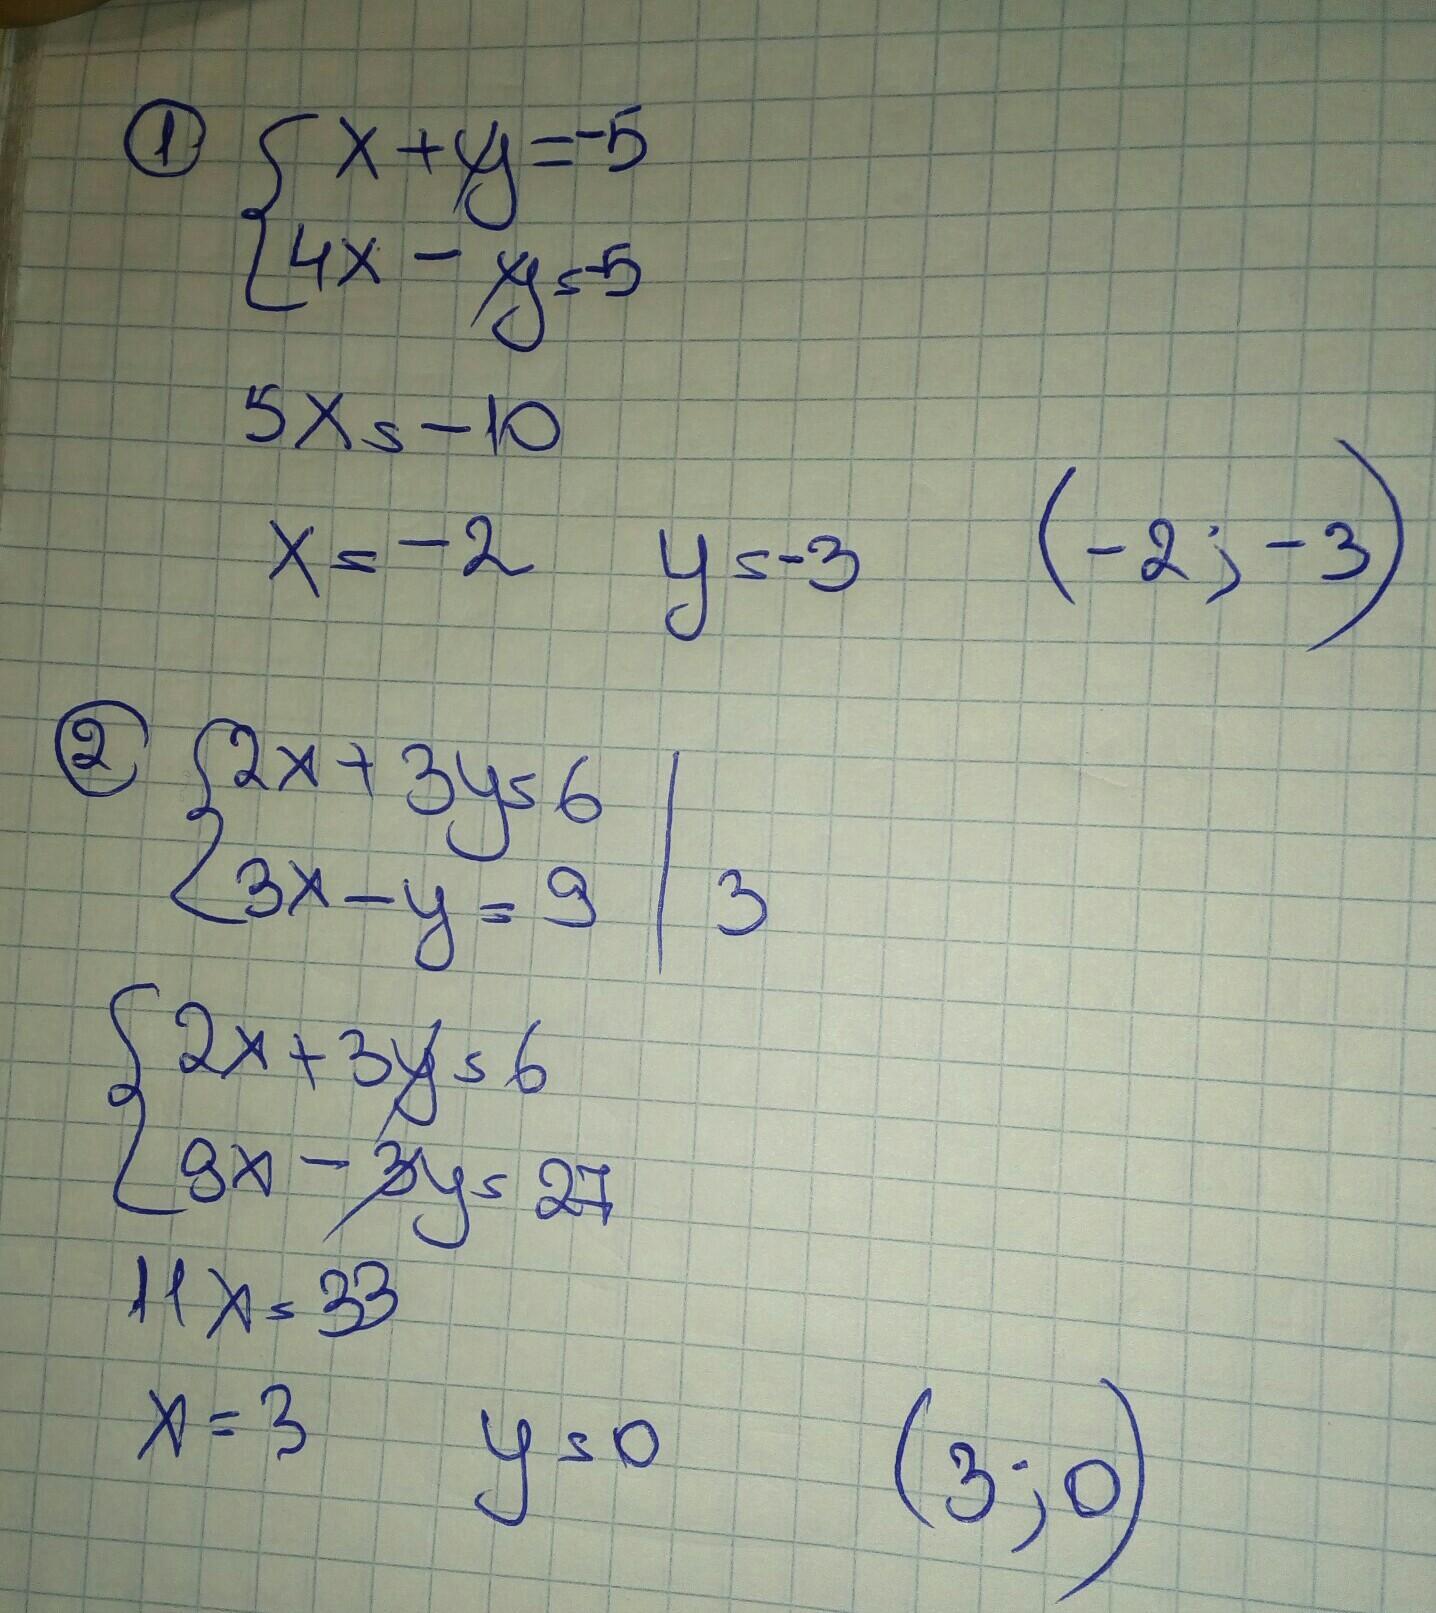 ① { x+y=-5
4x-y=-5
5x=-10
x=-2 y=-3 (-2; -3)
② { 2x+3y=6
3x-y=9 | 3
{ 2x+3y=6
9x-3y=27
11x=33
x=3 y=0 (3; 0)